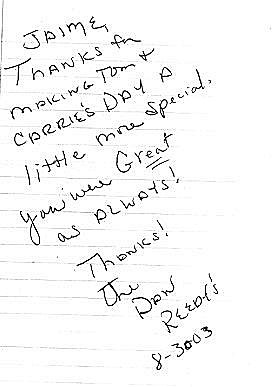 JAIME,
THANKS for
MAKING TOM &
CARRIE'S DAY A
little more special.
you were Great
as ALWAYS!
THANKS!
The DAN
REEDY'S
8-3003